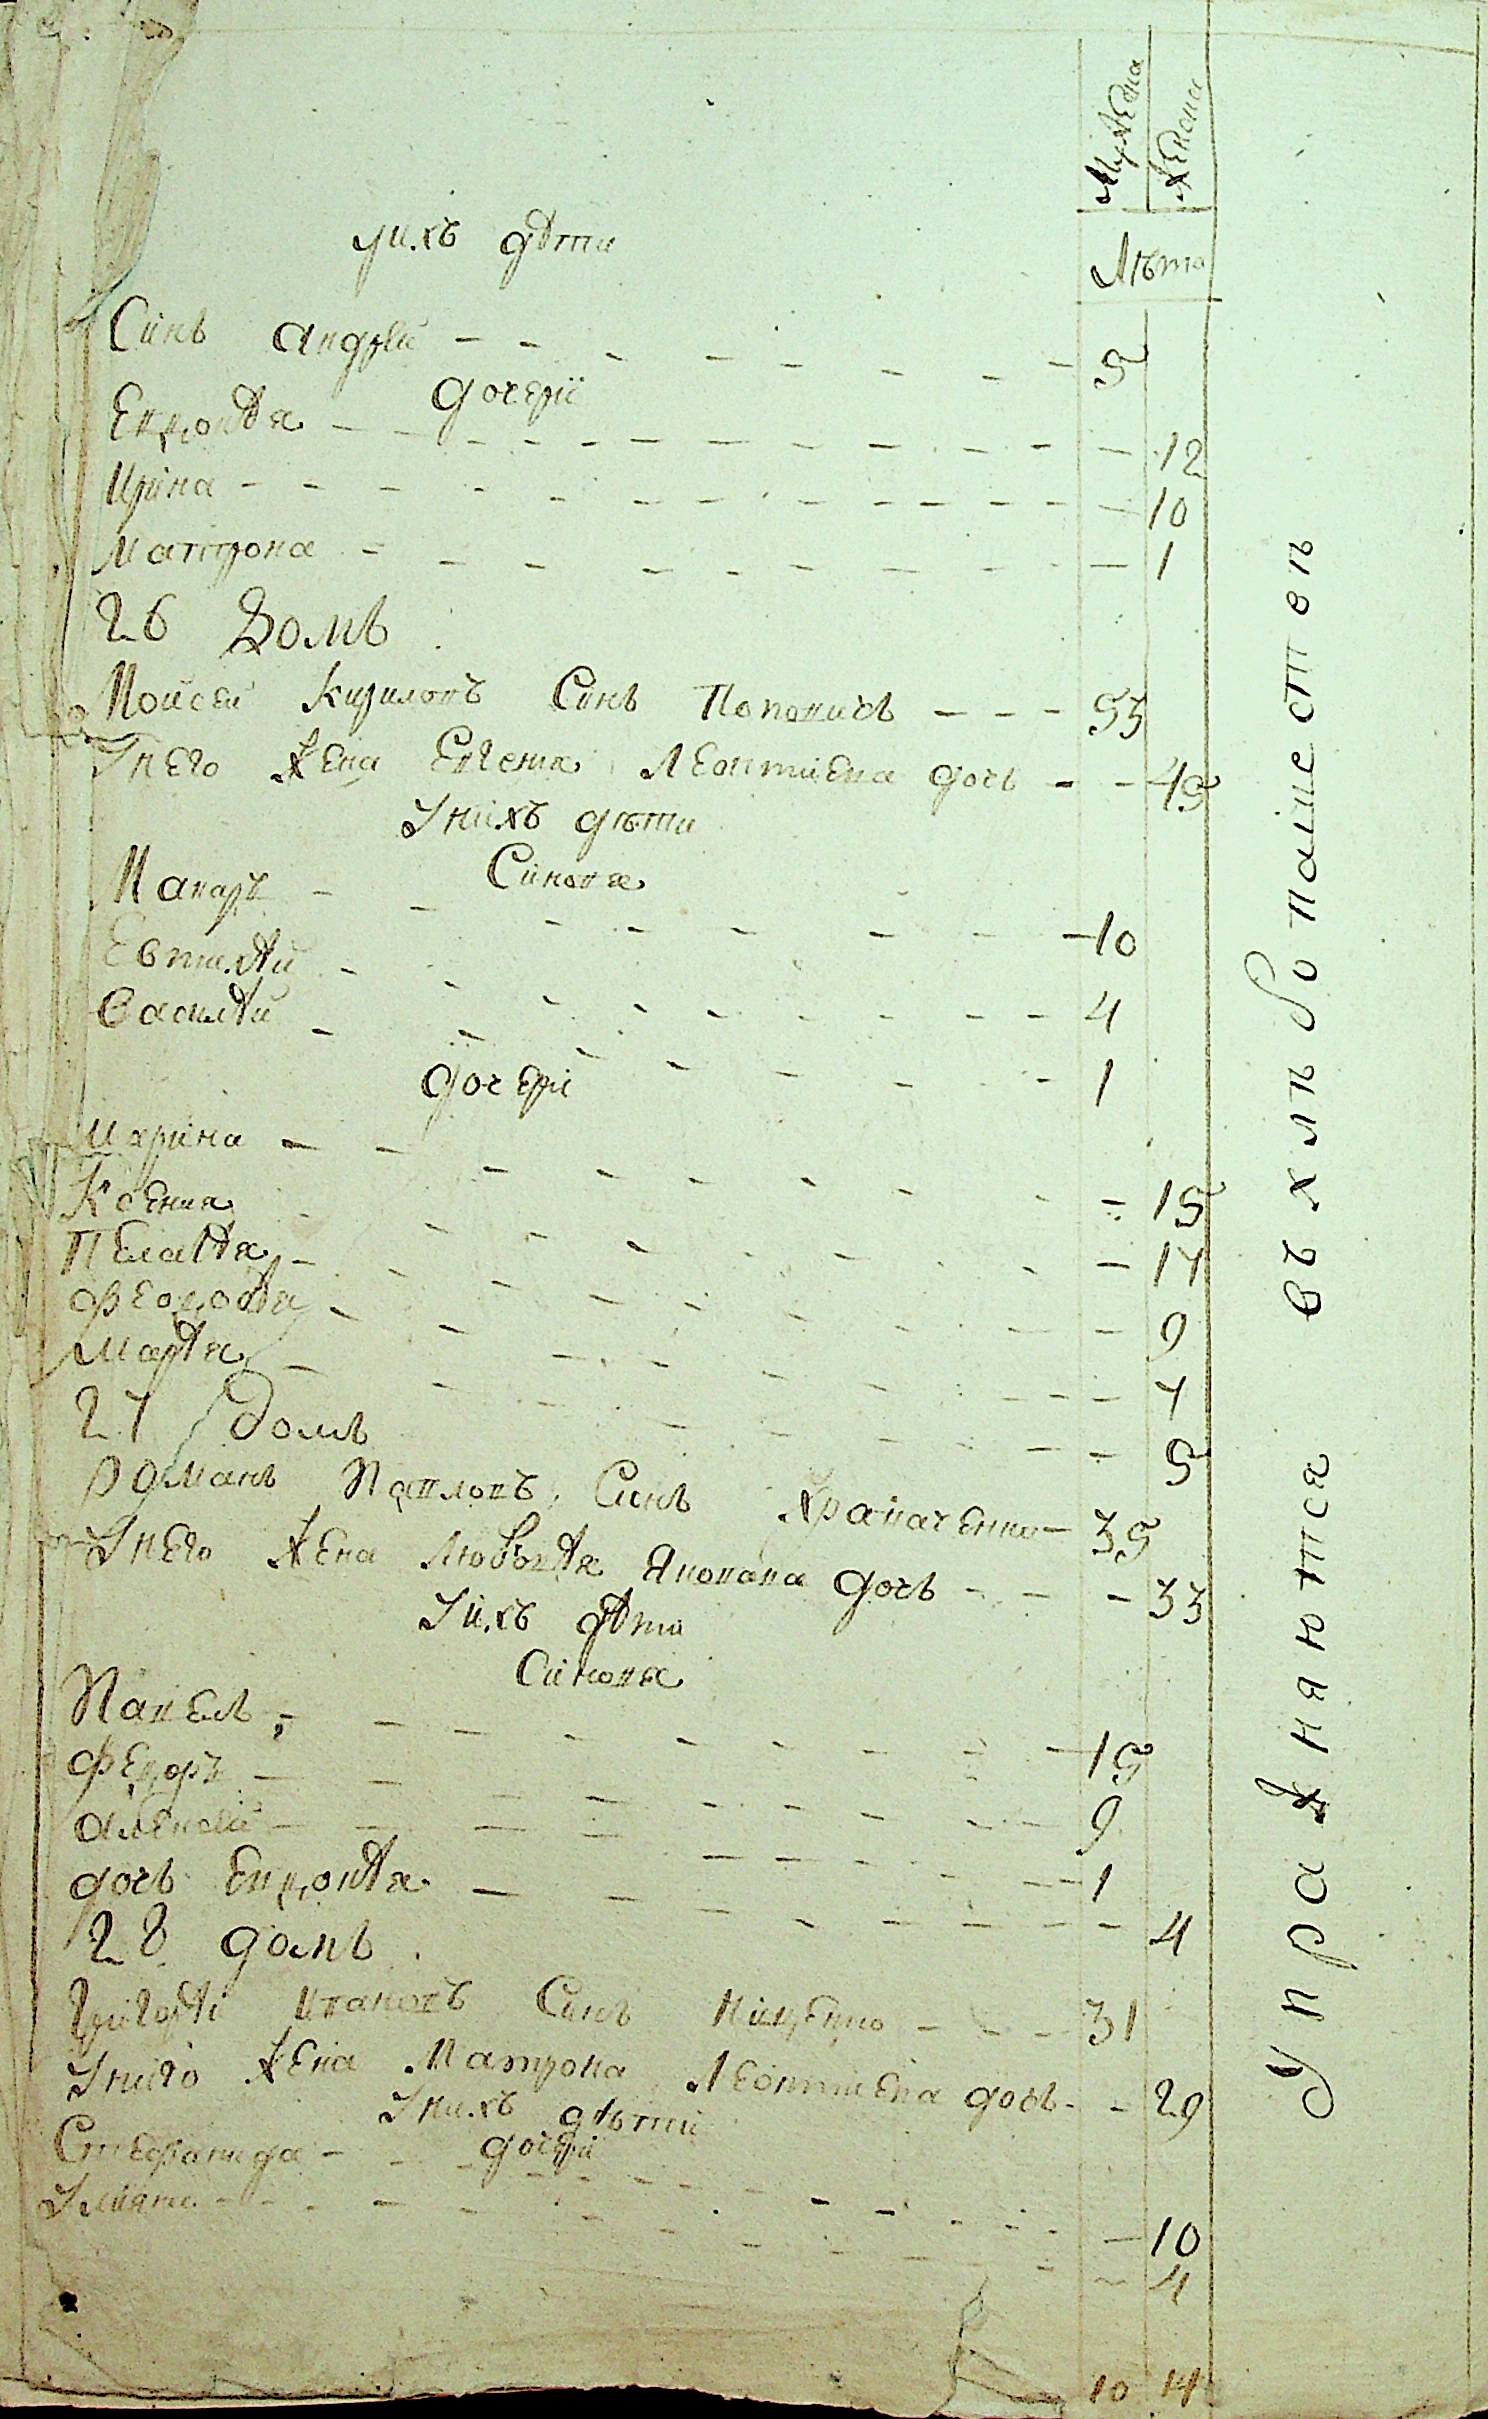 Мужеска
Женска
Лѣта
у ихъ дѣти
Синъ Андрѣй 5
дочерїи
Евдокѣя 12
Ирина 10
Матрона 1
26 Домъ
Мойсей Кириловъ Синъ Поповичъ 53
У него жена Евгения Леонтиева дочь 45
У нихъ дѣти
Синовя
Макаръ 10
Евтихѣй 4
Василѣй 1
дочерї
Ирина 15
Ксения 14
Пелагѣя 9
Феодосѣя 7
Марѣя 5
27 Домъ
Романъ Павловъ Синъ 35
У него жена Любовъ Яковлева дочь 33
У ихъ дѣти
Синовя
Павелъ 15
Федоръ 9
Алексѣй 1
дочь Евдокѣя 4
28 домъ
Григорѣй Ивановъ Синъ 31
У ниго жена Матрона Леонтиева дочь 29
У нихъ дѣтии
дочерїи
Стефанида 10
Улияна 4
10 14
Упражняются въ хлѣбопашествѣ